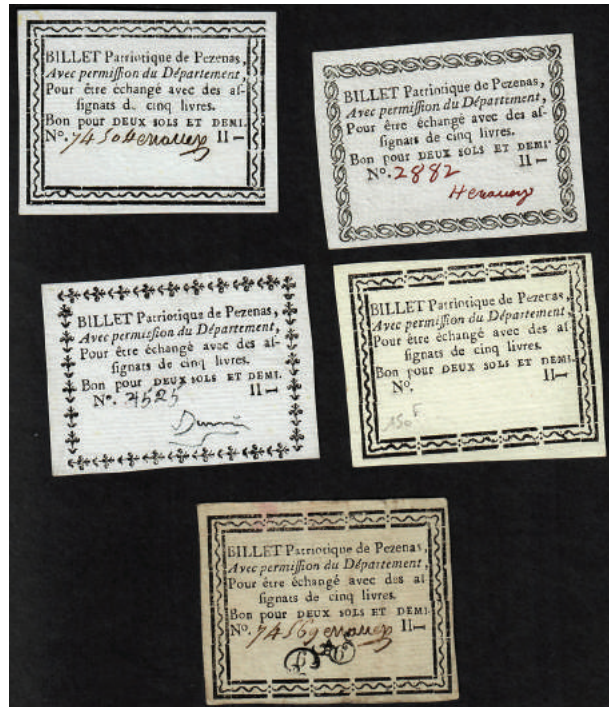 BILLET Patriotique de Pezenas,
Avec permiſſion du Département,
Pour être échangé avec des aſ-
ſignats d. cinq livres.
Bon pour DEUX SOLS ET DEMI.
N°. 7450 Henauer II—
BILLET Patriotique de Pezenas,
Avec permiſſion du Département,
Pour être échangé avec des aſ-
ſignats de cinq livres.
Bon pour DEUX SOLS ET DEMI.
N°. 2882 II—
BILLET Patriotique de Pezenas,
Avec permiſſion du Département,
Pour être échangé avec des aſ-
ſignats de cinq livres.
Bon pour DEUX SOLS ET DEMI.
N°. 4525 II—
BILLET Patriotique de Pezenas,
Avec permiſſion du Département,
Pour être échangé avec des aſ-
ſignats de cinq livres.
Bon pour DEUX SOLS ET DEMI.
N°. II—
150 F
BILLET Patriotique de Pezenas,
Avec permiſſion du Département,
Pour être échangé avec des aſ
ſignats de cinq livres.
Bon pour DEUX SOLS ET DEMI.
N°. 7456 II—